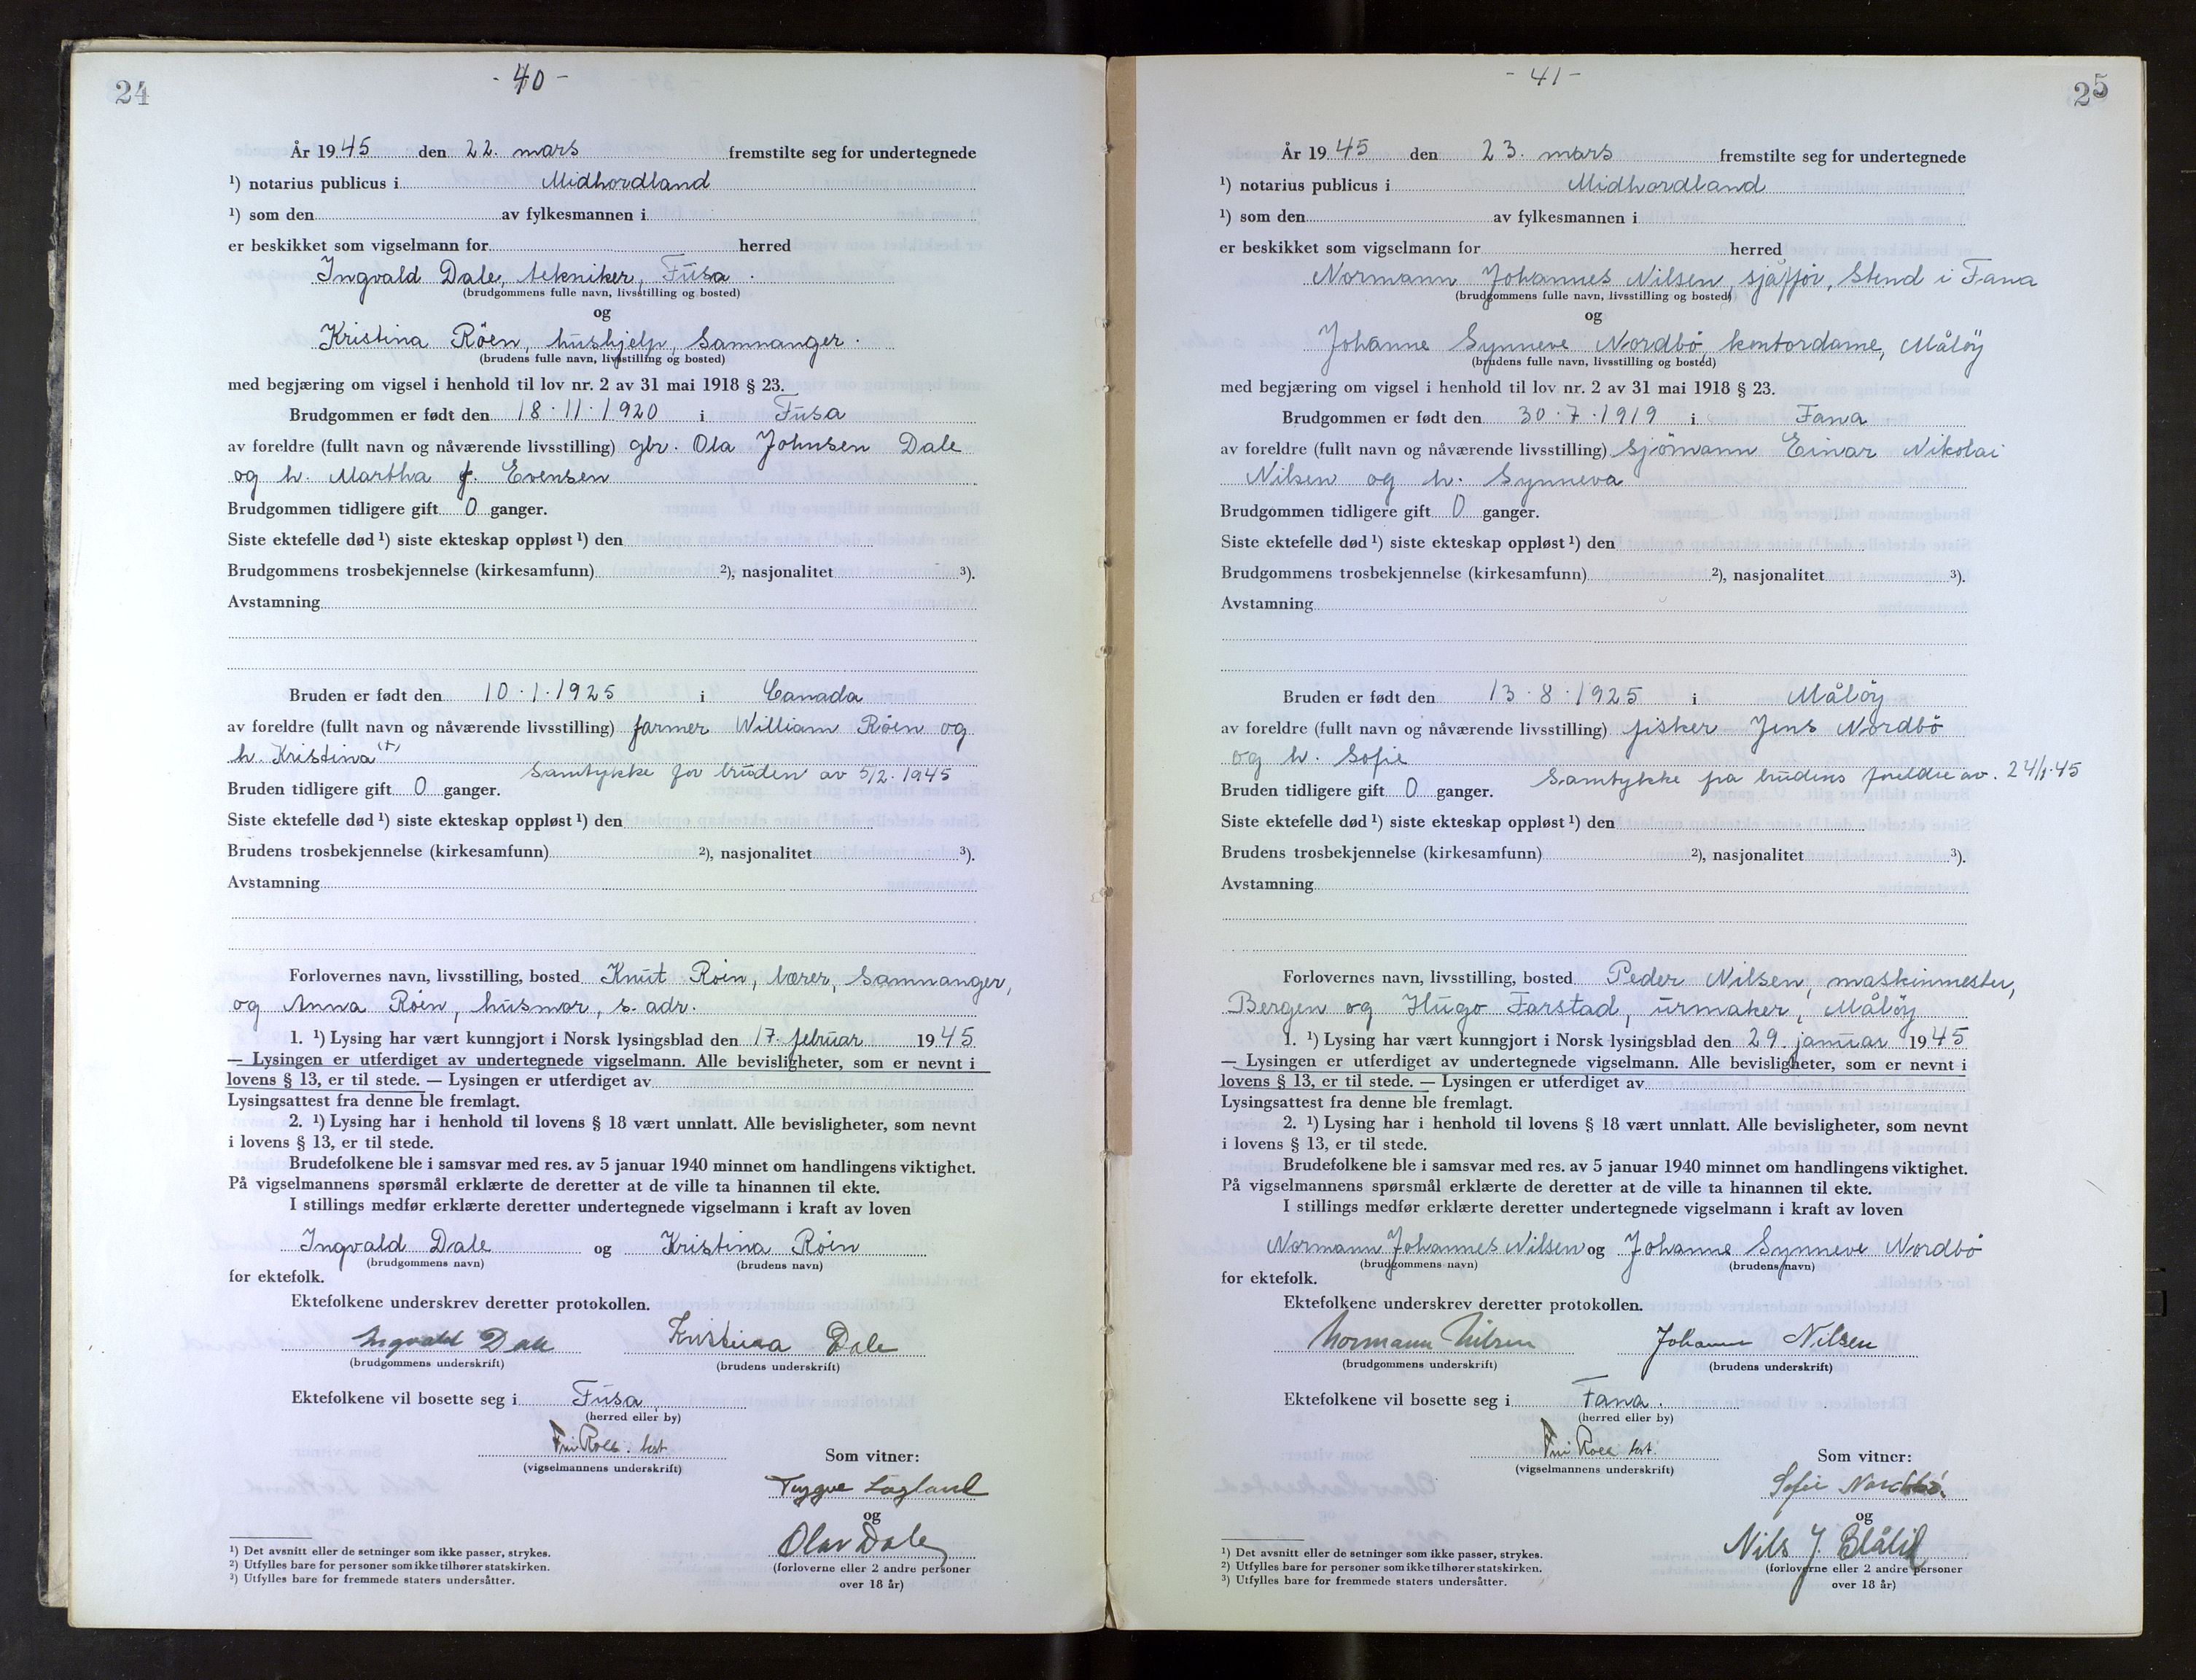 24
- 40 -
År 1945 den 22. mars fremstilte seg for undertegnede
¹) notarius publicus i Midhordland
¹) som den av fylkesmannen i
er beskikket som vigselmann for herred
Ingvald Dale, tekniker, Fusa.
(brudgommens fulle navn, livsstilling og bosted)
og
Kristina Röen, hushjelp, Samnanger.
(brudens fulle navn, livsstilling og bosted)
med begjæring om vigsel i henhold til lov nr. 2 av 31 mai 1918 § 23.
Brudgommen er født den 18.11.1920 i Fusa
av foreldre (fullt navn og nåværende livsstilling) gbr. Ola Johnsen Dale
og h. Martha f. Evensen
Brudgommen tidligere gift 0 ganger.
Siste ektefelle død ¹) siste ekteskap oppløst ¹) den
Brudgommens trosbekjennelse (kirkesamfunn) ²), nasjonalitet ³).
Avstamning
Bruden er født den 10.1.1925 i Canada
av foreldre (fullt navn og nåværende livsstilling) farmer William Röen og
h. Kristina (+)
Samtykke for bruden av 5/2.1945
Bruden tidligere gift 0 ganger.
Siste ektefelle død ¹) siste ekteskap oppløst ¹) den
Brudens trosbekjennelse (kirkesamfunn) ²), nasjonalitet ³).
Avstamning
Forlovernes navn, livsstilling, bosted Knut Röen, lærer, Samnanger,
og Anna Röen, husmor, s. adr.
1. ¹) Lysing har vært kunngjort i Norsk lysingsblad den 17. februar 1945
— Lysingen er utferdiget av undertegnede vigselmann. Alle bevisligheter, som er nevnt i
lovens § 13, er til stede. — Lysingen er utferdiget av
Lysingsattest fra denne ble fremlagt.
2. ¹) Lysing har i henhold til lovens § 18 vært unnlatt. Alle bevisligheter, som nevnt
i lovens § 13, er til stede.
Brudefolkene ble i samsvar med res. av 5 januar 1940 minnet om handlingens viktighet.
På vigselmannens spørsmål erklærte de deretter at de ville ta hinannen til ekte.
I stillings medfør erklærte deretter undertegnede vigselmann i kraft av loven
Ingvald Dale og Kristina Röen
(brudgommens navn) (brudens navn)
for ektefolk.
Ektefolkene underskrev deretter protokollen.
Ingvald Dale Kristina Dale
(brudgommens underskrift) (brudens underskrift)
Ektefolkene vil bosette seg i Fusa
(herred eller by)
(vigselmannens underskrift)
Som vitner:
Trygve
og
Olav Dale
(forloverne eller 2 andre personer
over 18 år)
¹) Det avsnitt eller de setninger som ikke passer, strykes.
²) Utfylles bare for personer som ikke tilhører statskirken.
³) Utfylles bare for fremmede staters undersåtter.
- 41 -
25
År 1945 den 23. mars fremstilte seg for undertegnede
¹) notarius publicus i Midhordland
¹) som den av fylkesmannen i
er beskikket som vigselmann for herred
Normann Johannes Nilsen, sjåfför, Stend i Fana
(brudgommens fulle navn, livsstilling og bosted)
og
Johanne Synneve Nordbö, kontordame, Målöy
(brudens fulle navn, livsstilling og bosted)
med begjæring om vigsel i henhold til lov nr. 2 av 31 mai 1918 § 23.
Brudgommen er født den 30.7.1919 i Fana
av foreldre (fullt navn og nåværende livsstilling) sjömann Einar Nikolai
Nilsen og h. Synneva
Brudgommen tidligere gift 0 ganger.
Siste ektefelle død ¹) siste ekteskap oppløst ¹) den
Brudgommens trosbekjennelse (kirkesamfunn) ²), nasjonalitet ³).
Avstamning
Bruden er født den 13.8.1925 i Målöy
av foreldre (fullt navn og nåværende livsstilling) fisker Jens Nordbö
og h. Sofie
Samtykke fra brudens foreldre av. 24/1.45
Bruden tidligere gift 0 ganger.
Siste ektefelle død ¹) siste ekteskap oppløst ¹) den
Brudens trosbekjennelse (kirkesamfunn) ²), nasjonalitet ³).
Avstamning
Forlovernes navn, livsstilling, bosted Peder Nilsen, maskinmester,
Bergen og Hugo Farstad, urmaker, Målöy
1. ¹) Lysing har vært kunngjort i Norsk lysingsblad den 29. januar 1945
— Lysingen er utferdiget av undertegnede vigselmann. Alle bevisligheter, som er nevnt i
lovens § 13, er til stede. — Lysingen er utferdiget av
Lysingsattest fra denne ble fremlagt.
2. ¹) Lysing har i henhold til lovens § 18 vært unnlatt. Alle bevisligheter, som nevnt
i lovens § 13, er til stede.
Brudefolkene ble i samsvar med res. av 5 januar 1940 minnet om handlingens viktighet.
På vigselmannens spørsmål erklærte de deretter at de ville ta hinannen til ekte.
I stillings medfør erklærte deretter undertegnede vigselmann i kraft av loven
Normann Johannes Nilsen og Johanne Synneve Nordbö
(brudgommens navn) (brudens navn)
for ektefolk.
Ektefolkene underskrev deretter protokollen.
Normann Nilsen Johanne Nilsen
(brudgommens underskrift) (brudens underskrift)
Ektefolkene vil bosette seg i Fana.
(herred eller by)
(vigselmannens underskrift)
Som vitner:
Sofie Nordbö.
og
Nils J. Blålid
(forloverne eller 2 andre personer
over 18 år)
¹) Det avsnitt eller de setninger som ikke passer, strykes.
²) Utfylles bare for personer som ikke tilhører statskirken.
³) Utfylles bare for fremmede staters undersåtter.